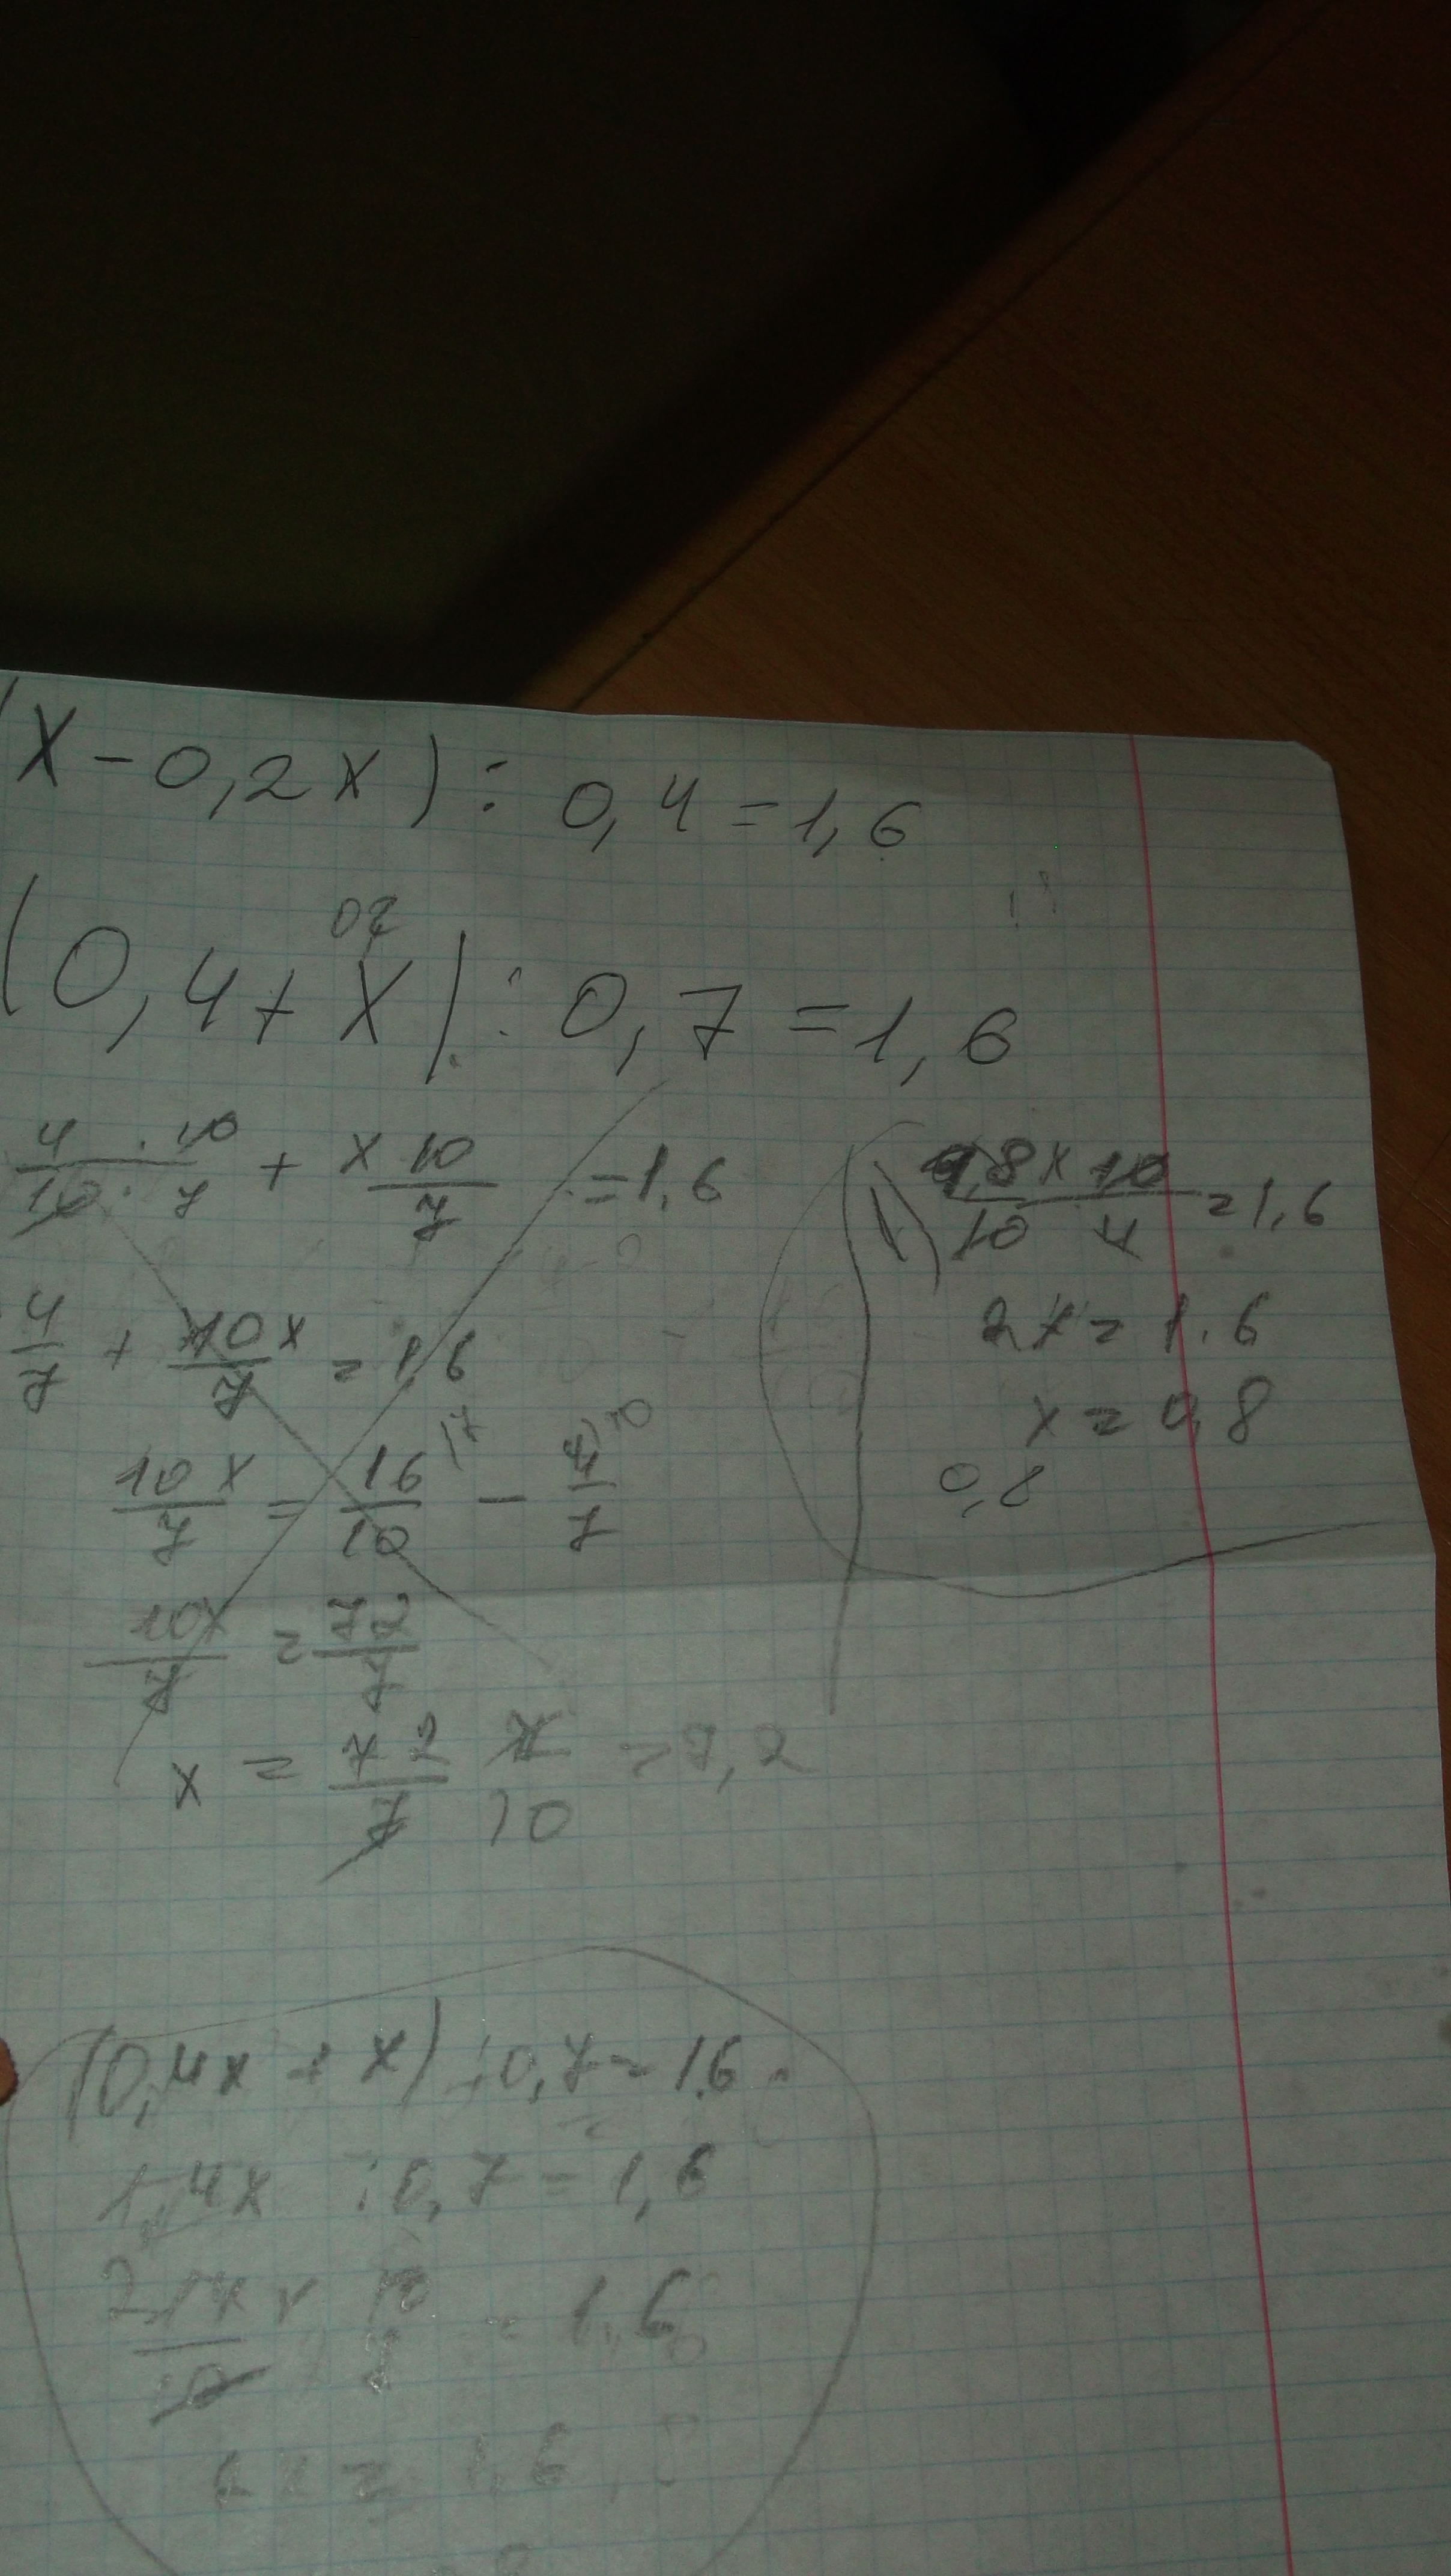 (x - 0,2x) : 0,4 = 1,6
(0,4 + x) : 0,7 = 1,6
4 · 10 / 10 · 7 + x 10 / 7 = 1,6
4/7 + 10x/7 = 1,6
10x/7 = 16/10 - 4/7
10x/7 = 72/7
x = 72/7 7/10 = 7,2
0,8x 10 / 10 4 = 1,6
2x = 1.6
x = 0,8
0,8
(0,4x + x) : 0,7 = 1.6
1,4x : 0,7 = 1,6
14x/10 10/7 = 1,6
2x = 1,6